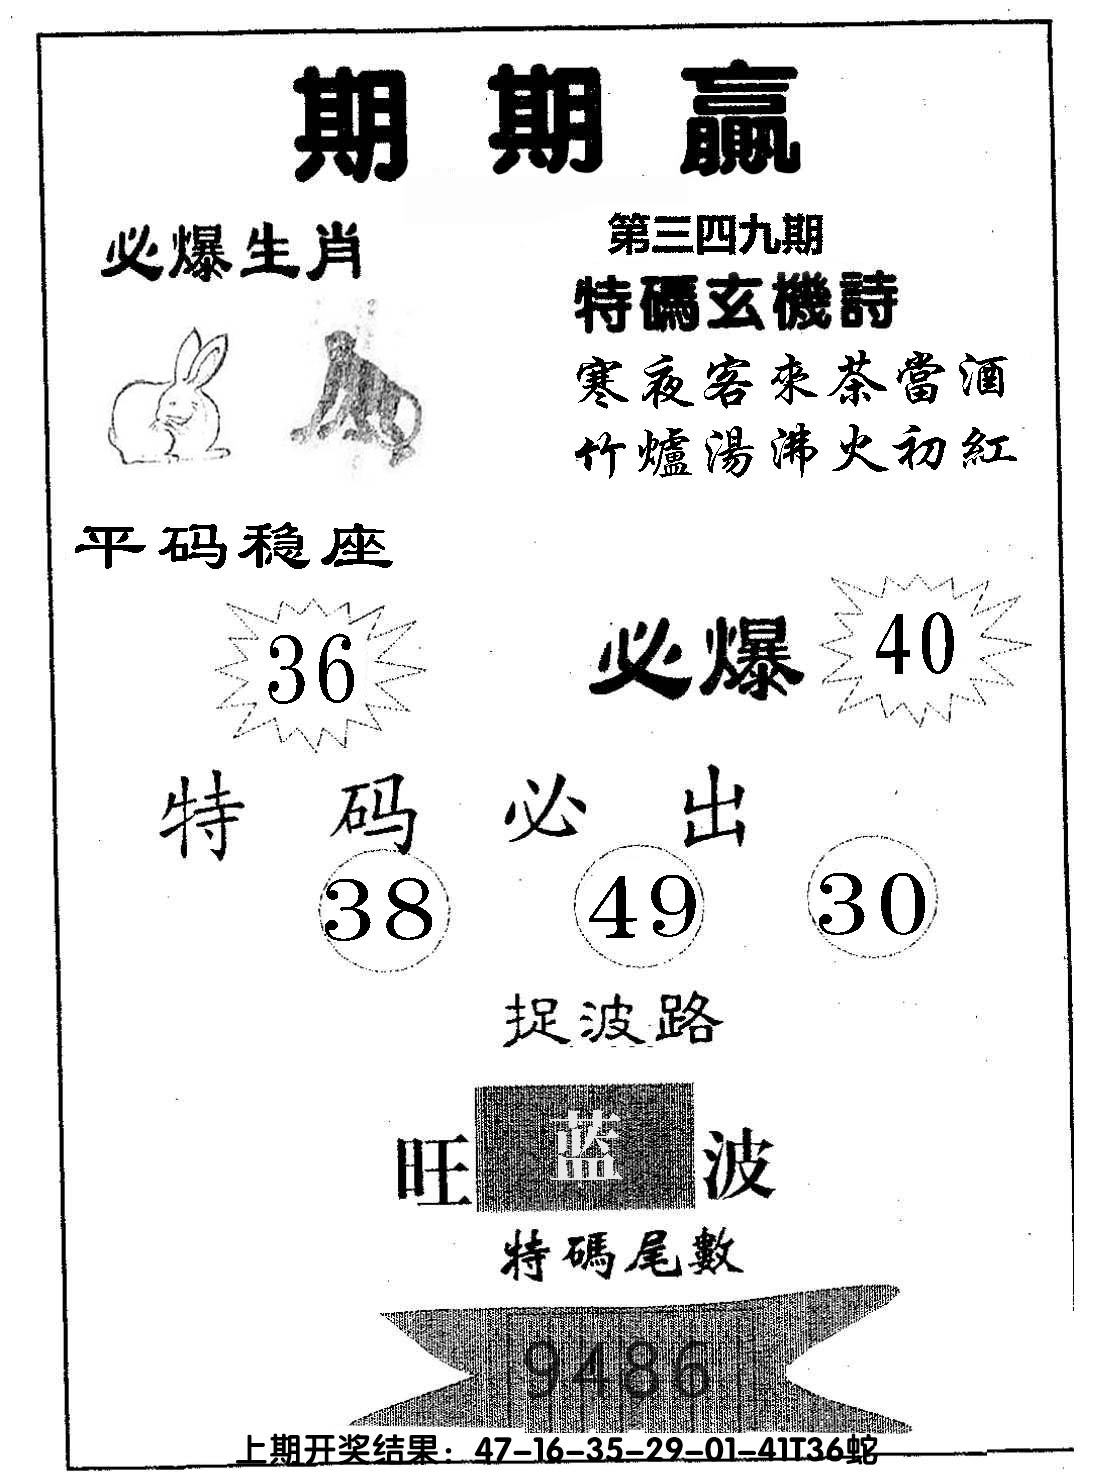 期期赢
必爆生肖
第三四九期
特碼玄機詩
寒夜客來茶當酒
竹爐湯沸火初紅
平码稳座
36
必爆 40
特码必出
38 49 30
捉波路
旺蓝波
特碼尾數
9486
上期开奖结果：47-16-35-29-01-41T36蛇